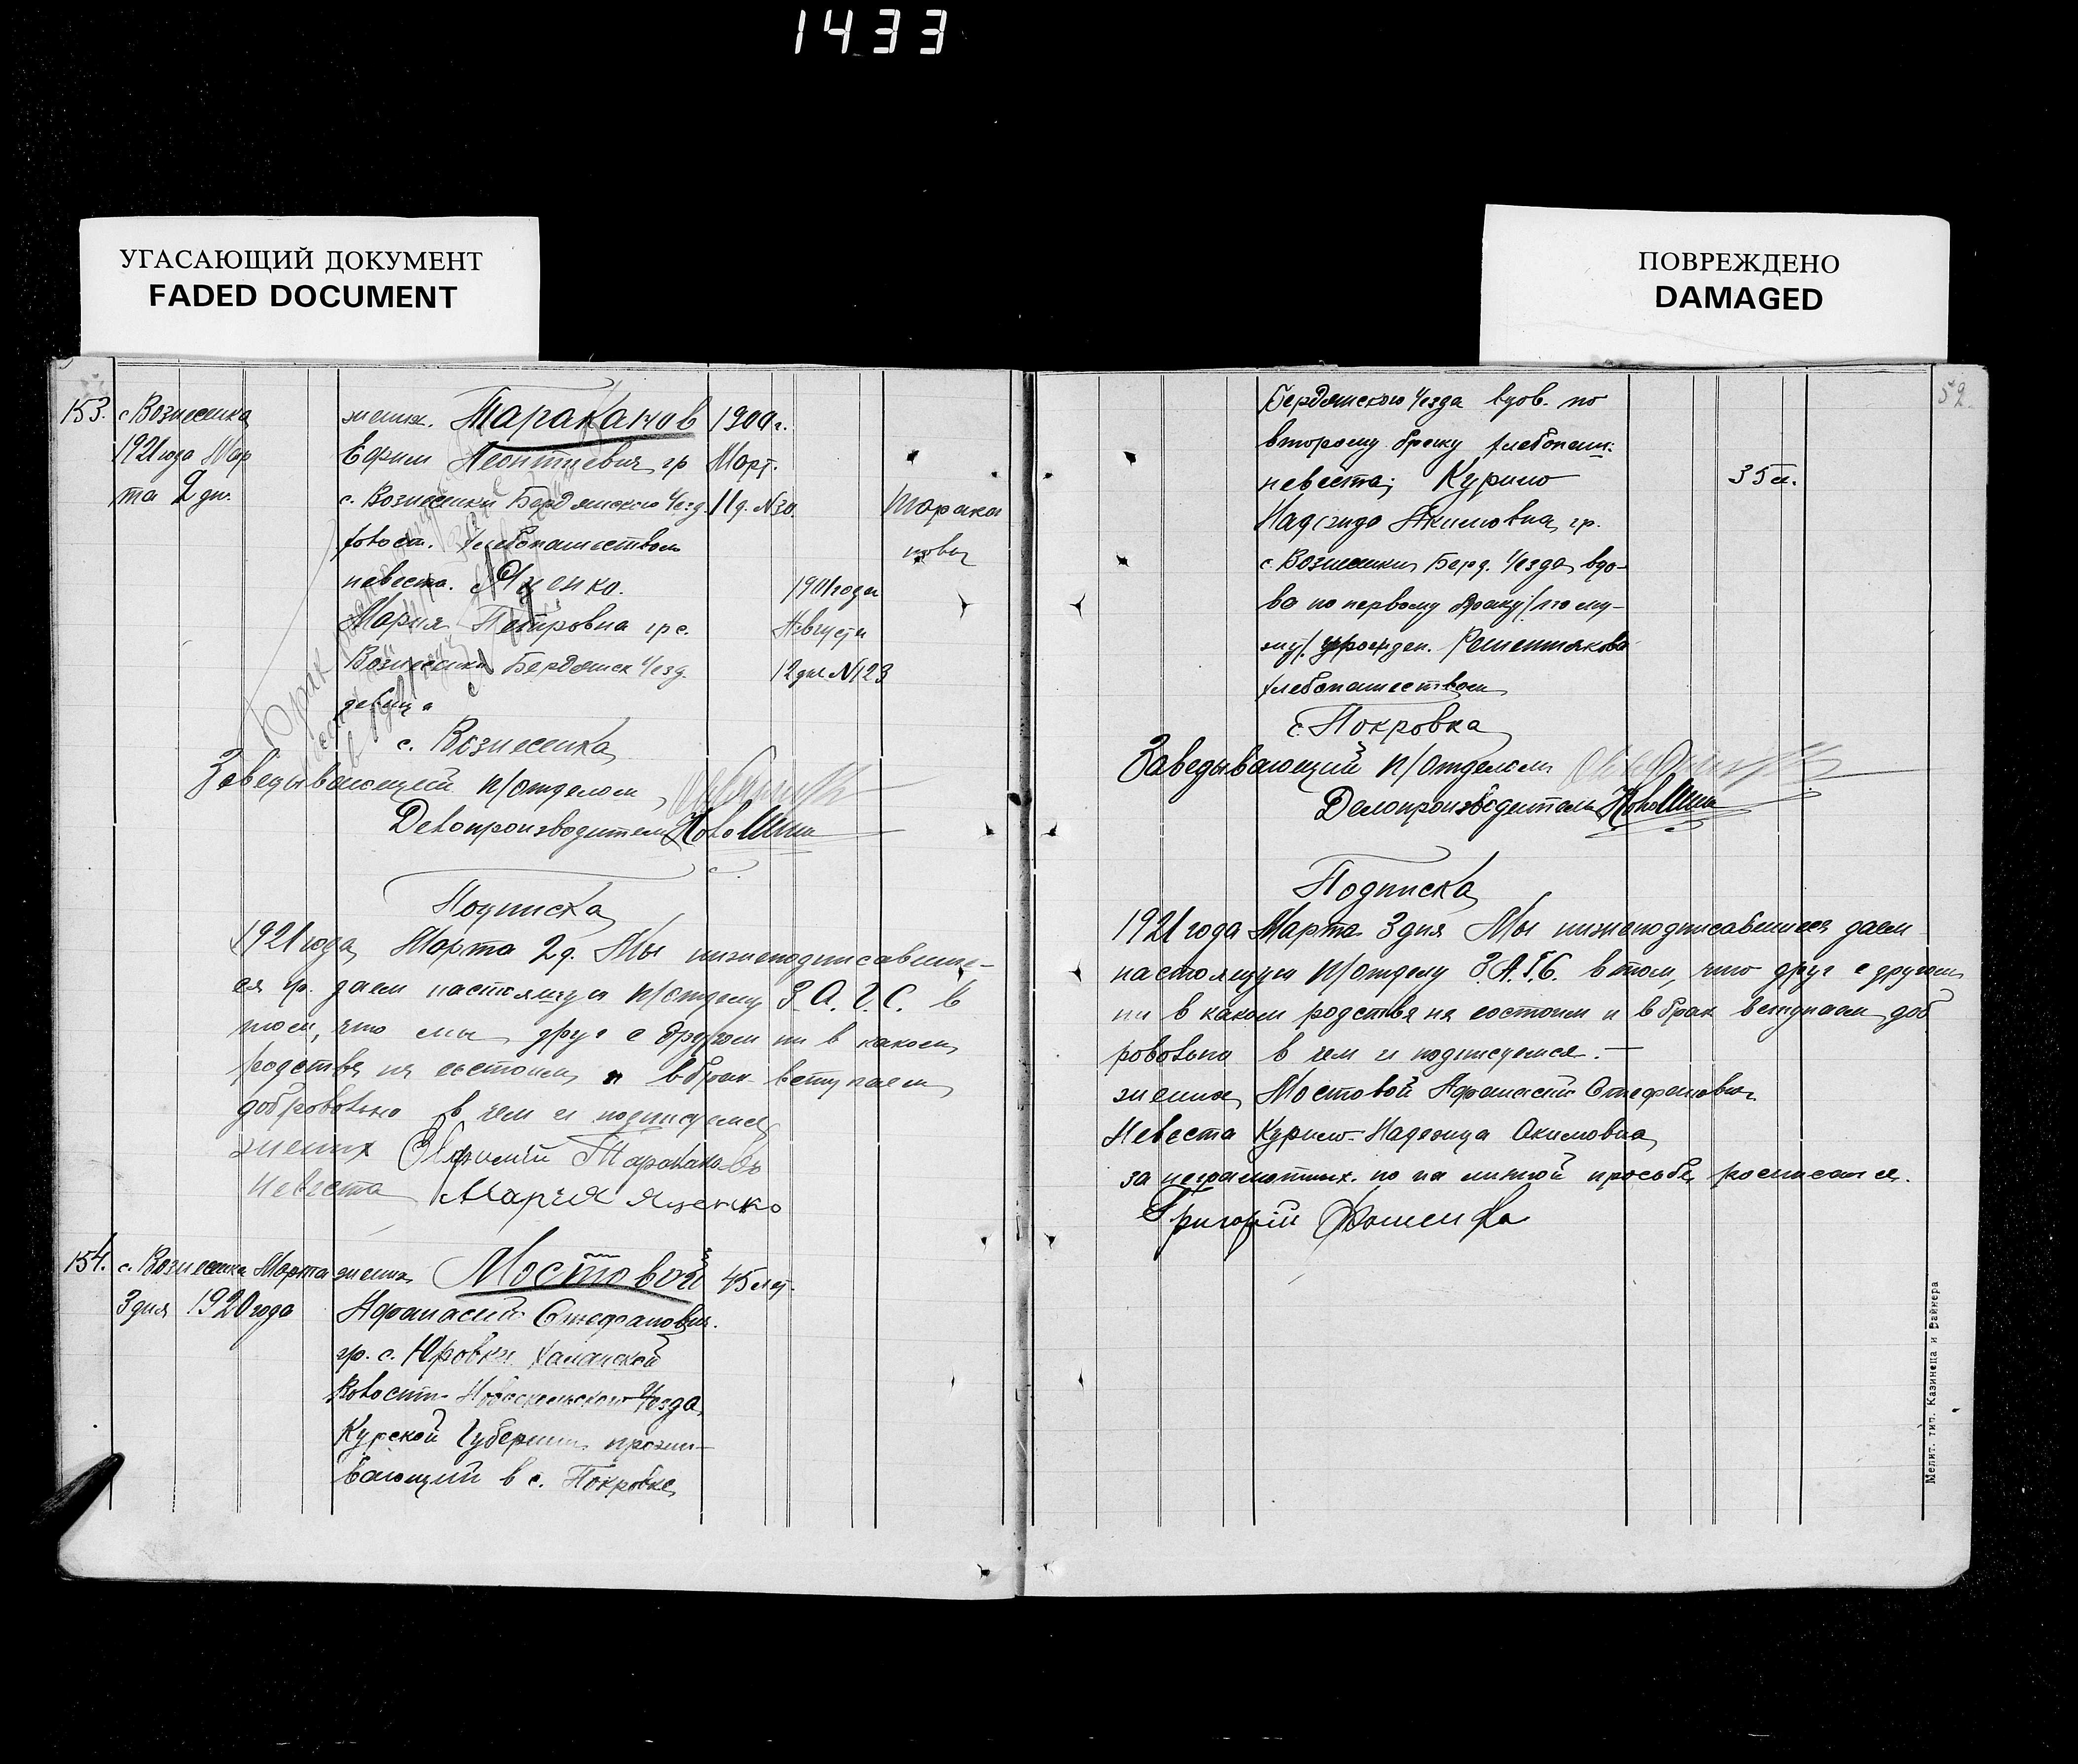 1433
УГАСАЮЩИЙ ДОКУМЕНТ
FADED DOCUMENT
ПОВРЕЖДЕНО
DAMAGED
153. с Вознесенка
1921 года Мар
та 2 дн.
жених. Тараканов 1900 г.
Ефим Леонтиевич гр Март.
с. Вознесенки Бердянского Уезд. 11 д. №30.
холост. хлебопашеством
невеста. Яценко. 1901 года
Мария Петровна гр с. Августа
Вознесенки Бердянск Уезд. 12 дня №123
девица
Тарака
новы
Брак
с. Вознесенка
Заведывающий п/отделом
Делопроизводитель
Подписка
1921 года Марта 2 д. Мы нижеподписавшие-
ся гр. даем настоящую п/отделу З.А.Г.С. в
том, что мы друг с другом ни в каком
родстве не состоим и в брак вступаем
добровольно в чем и подписуемся
жених Тараканов
Невеста Мария Яценко
154. с. Вознесенка Марта
3 дня 1920 года
жених Мостовой 45 лет.
Афанасий Стефанович.
гр. с. Юровки Халанской
Волости Новоскольского Уезда,
Курской Губернии прожи-
вающий в с. Покровке
52.
Бердянского Уезда вдов. по
второму браку хлебопаш.
невеста; Курило 35 л.
Надежда Акимовна гр.
с. Вознесенки Берд. Уезда вдо-
ва по первому браку/по му-
жу/. урожден.
хлебопашеством
с. Покровка
Заведывающий п/отделом
Делопроизводитель
Подписка
1921 года Марта 3 дня Мы нижеподписавшиеся даем
настоящую п/отделу З.А.Г.С. в том, что друг с другом
ни в каком родстве не состоим и в брак вступаем доб
ровольно в чем и подписуемся. —
жених Мостовой Афанасий Стефанович
Невеста Курило Надежда Акимовна
за неграмотных. по их личной просьбе росписался.
Григорий
Мелит. тип. Казинеца и Вайнера